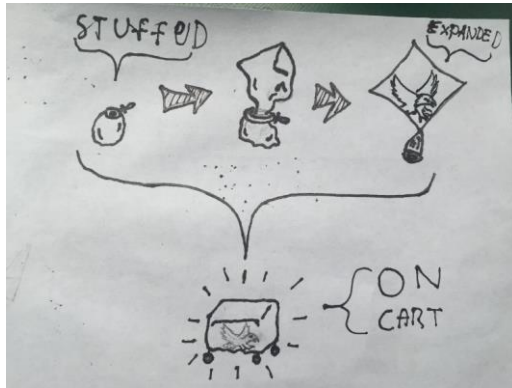 STUFFED
EXPANDED
ON
CART